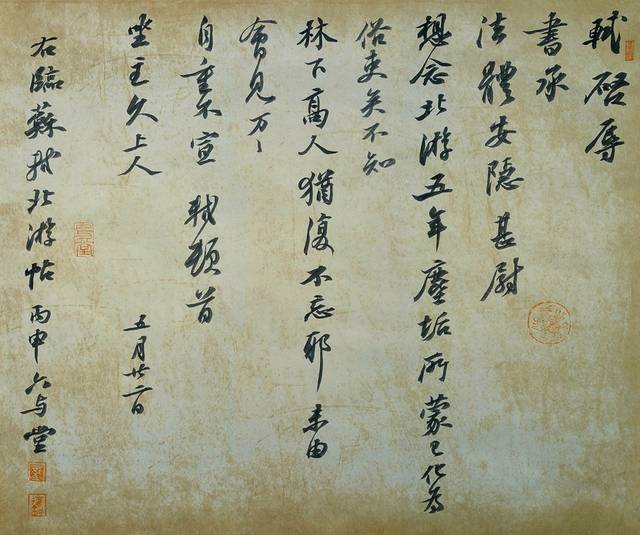 軾啓辱
書承
法體安隱甚慰
想念北游五年塵垢所蒙已化為
俗吏矣不知
林下高人猶復不忘耶未由
會見万〻
自重不宣 軾頓首
坐主久上人
五月廿二日
右臨蘇軾北游帖 丙申 六与堂